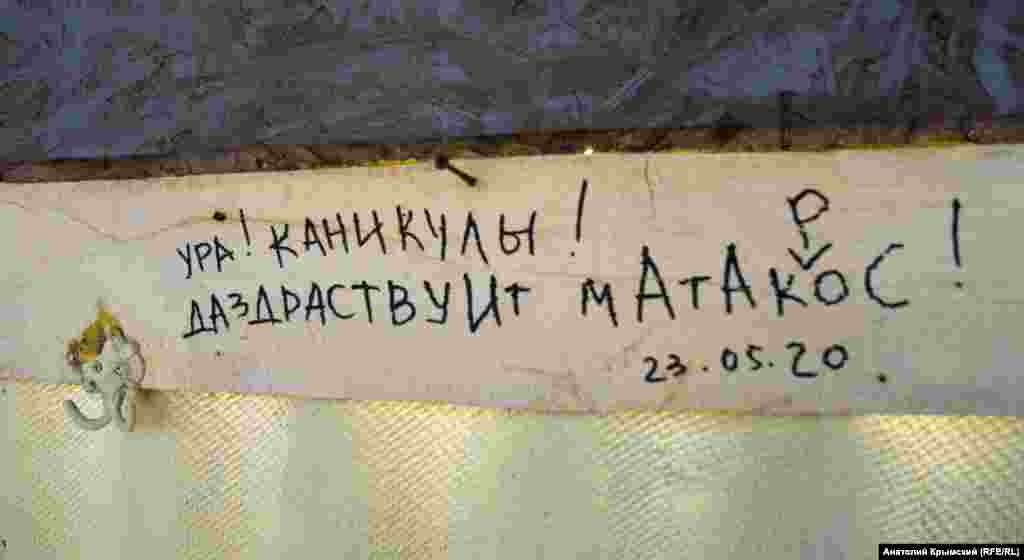 УРА! КАНИКУЛЫ!
ДАЗДРАСТВУИТ МАТАКРОС!
23.05.20.
Анатолий Крымский (RFE/RL)